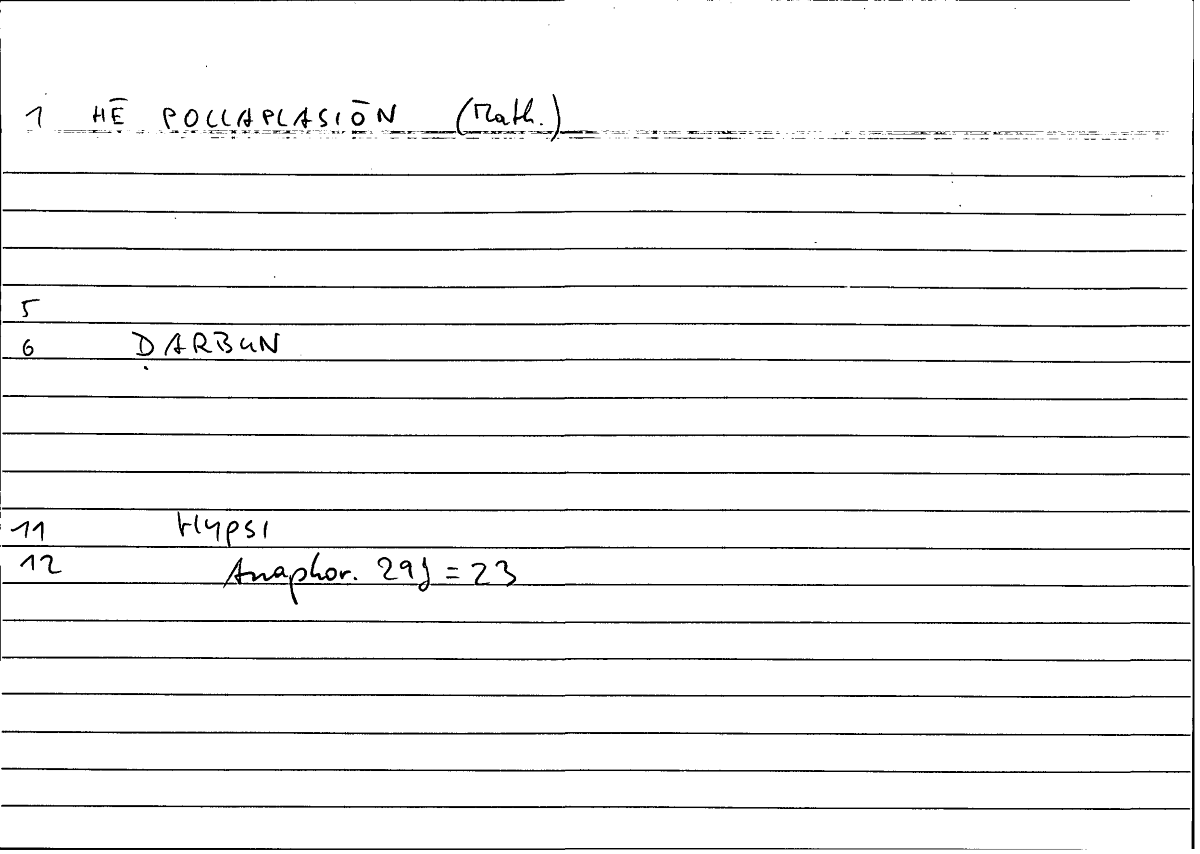 1 HĒ POLLAPLASIŌN (Math.)
5
6 ḌARBUN
11 Hypsi
12 Anaphor. 29f = 23